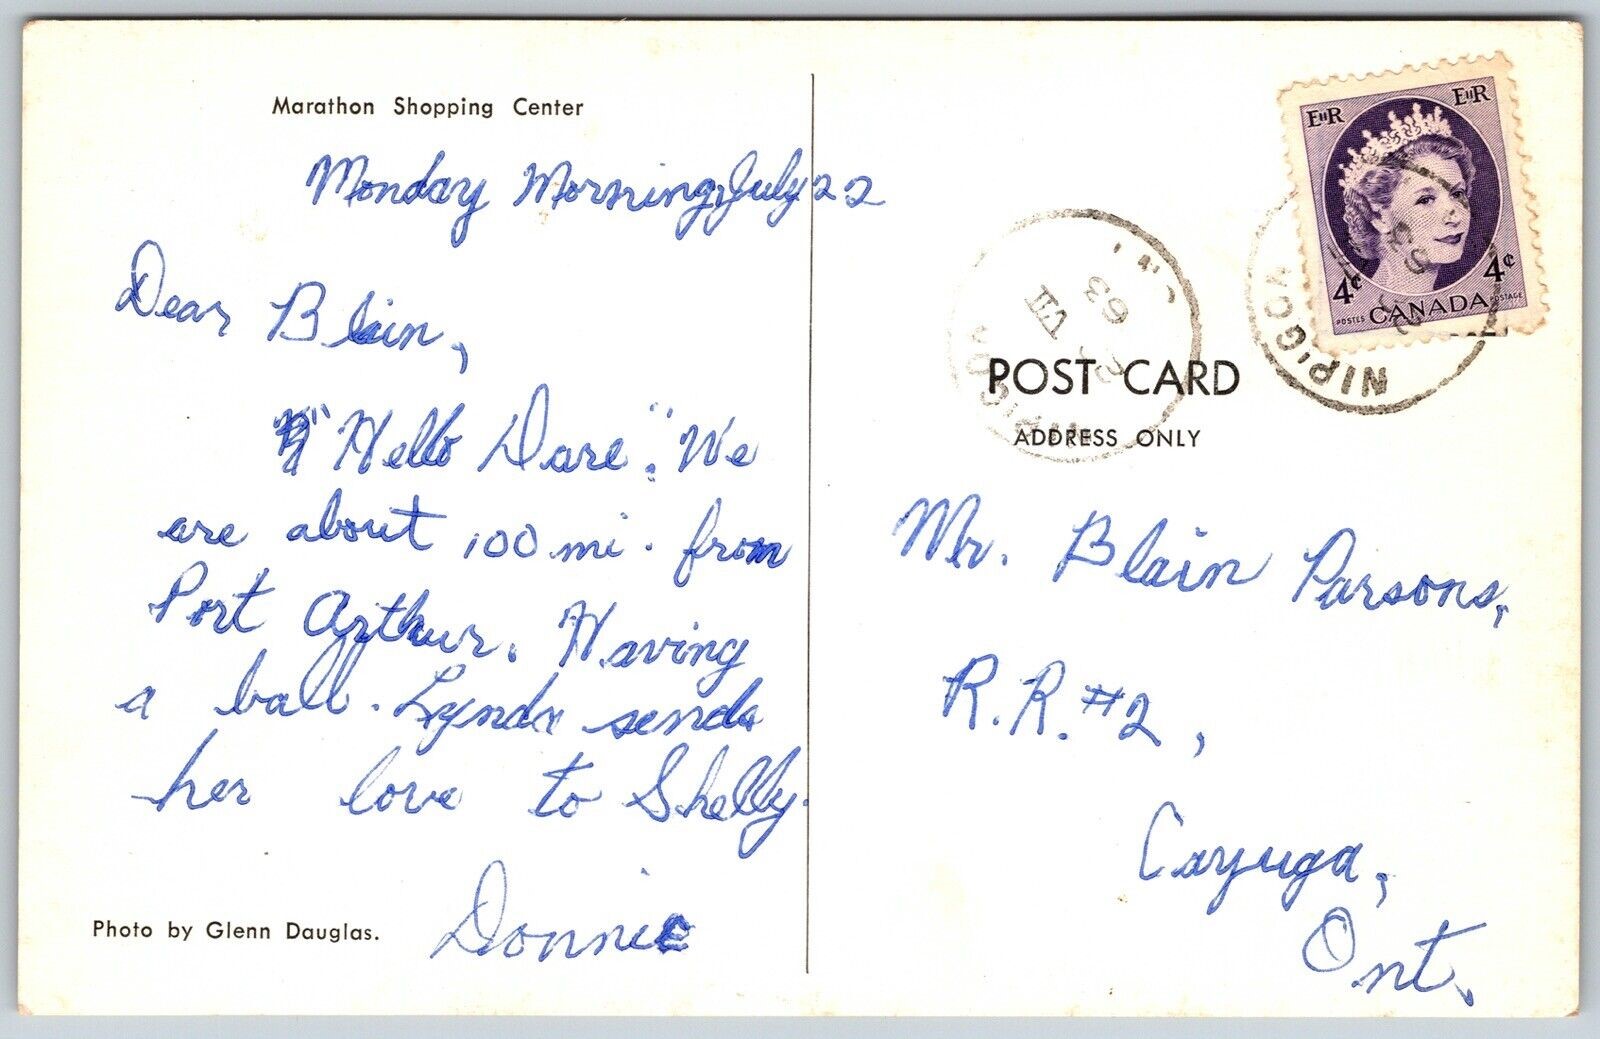 Marathon Shopping Center
Monday Morning, July 22
Dear Blain,
"Hello Dare". We
are about 100 mi. from
Port Arthur. Having
a ball. Lynda sends
her love to Shelly.
Donnie
Photo by Glenn Dauglas.
EIIR EIIR
4¢ 4¢
POSTES CANADA POSTAGE
NIPIGON
VII
63
POST CARD
ADDRESS ONLY
Mr. Blain Parsons,
R.R. #2,
Cayuga,
Ont.